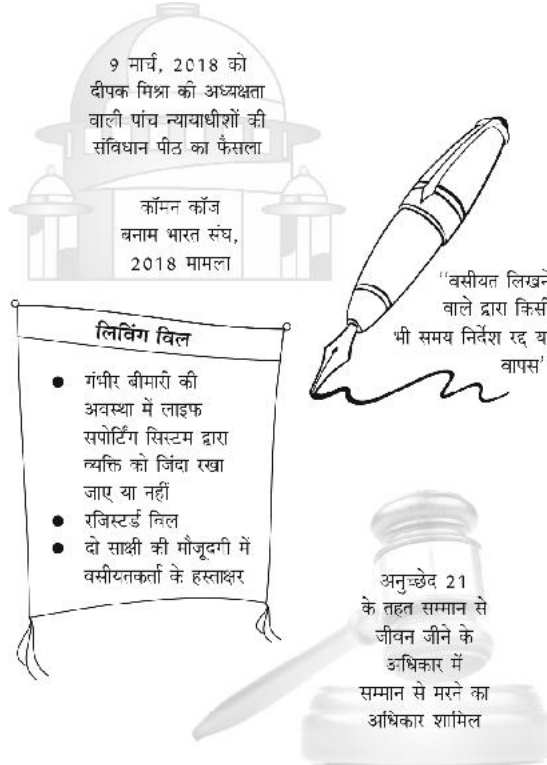 9 मार्च, 2018 को
दीपक मिश्रा की अध्यक्षता
वाली पांच न्यायाधीशों की
संविधान पीठ का फैसला
कॉमन कॉज
बनाम भारत संघ,
2018 मामला
"वसीयत लिखने
वाले द्वारा किसी
भी समय निर्देश रद्द या
वापस"
लिविंग विल
● गंभीर बीमारी की
अवस्था में लाइफ
सपोर्टिंग सिस्टम द्वारा
व्यक्ति को जिंदा रखा
जाए या नहीं
● रजिस्टर्ड विल
● दो साक्षी की मौजूदगी में
वसीयतकर्ता के हस्ताक्षर
अनुच्छेद 21
के तहत सम्मान से
जीवन जीने के
अधिकार में
सम्मान से मरने का
अधिकार शामिल